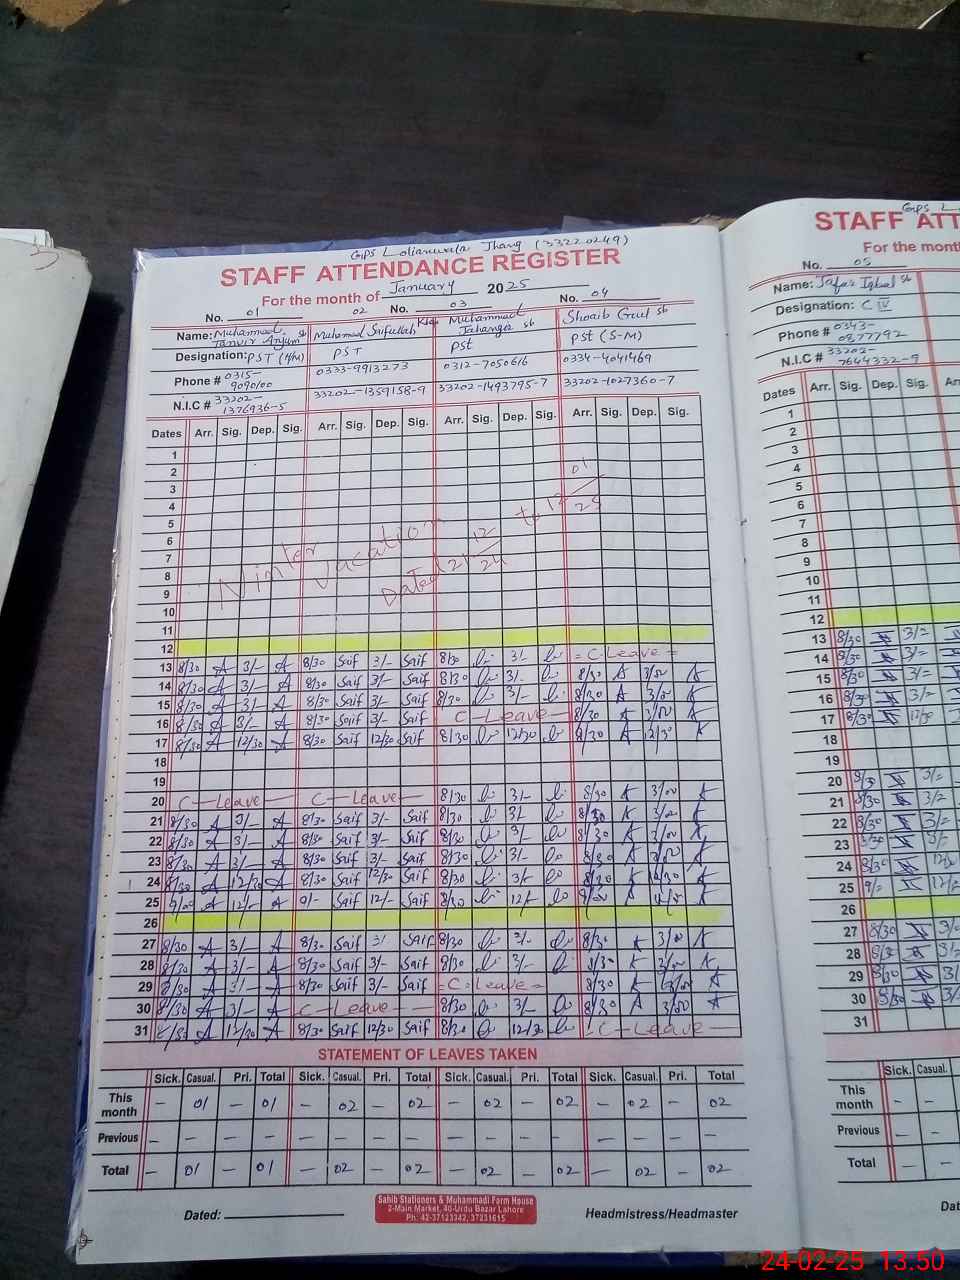 GPS Lolianwala Jhang (33220249)
STAFF ATTENDANCE REGISTER
For the month of January 2025
No. 01 02 No. 03 No. 04
Name: Muhammad Tanvir Anjum sb Muhamad Saifullah Khan Muhammad Jahangir sb Shoaib Gul sb
Designation: PST (H/M) PST PST PST (S-M)
Phone # 0315-9090100 0333-9913273 0312-7050616 0334-4041469
N.I.C # 33202-1376936-5 33202-1359158-9 33202-1493795-7 33202-1027360-7
Dates Arr. Sig. Dep. Sig. Arr. Sig. Dep. Sig. Arr. Sig. Dep. Sig. Arr. Sig. Dep. Sig.
1
2
3
4
5
6
7
8
9
10
11
Winter Vacation Dated 21 12/24 to 12 01/25
12
13 8/30 A 3/- A 8/30 Saif 3/- Saif 8/30 3/- = C-Leave =
14 8/30 A 3/- A 8/30 Saif 3/- Saif 8/30 3/- 8/30 A 3/00 A
15 8/30 A 3/- A 8/30 Saif 3/- Saif 8/30 3/- 8/30 A 3/00 A
16 8/30 A 3/- A 8/30 Saif 3/- Saif C-Leave 8/30 A 3/00 A
17 8/30 A 12/30 A 8/30 Saif 12/30 Saif 8/30 12/30 8/30 A 12/30 A
18
19
20 C-Leave C-Leave 8/30 3/- 8/30 A 3/00 A
21 8/30 A 3/- A 8/30 Saif 3/- Saif 8/30 3/- 8/30 A 3/00 A
22 8/30 A 3/- A 8/30 Saif 3/- Saif 8/30 3/- 8/30 A 3/00 A
23 8/30 A 3/- A 8/30 Saif 3/- Saif 8/30 3/- 8/30 A 3/00 A
24 8/30 A 12/30 A 8/30 Saif 12/30 Saif 8/30 3/- 8/30 A 12/30 A
25 9/00 A 12/- A 9/- Saif 12/- Saif 8/30 12/- 9/00 A A
26
27 8/30 A 3/- A 8/30 Saif 3/ SAIF 8/30 3/- 8/30 A 3/00 A
28 8/30 A 3/- A 8/30 Saif 3/- Saif 8/30 3/- 8/30 A 3/00 A
29 8/30 A 3/- A 8/30 Saif 3/- Saif = C-Leave = 8/30 A 3/00 A
30 8/30 A 3/- A C-Leave 8/30 3/- 8/30 A 3/00 A
31 8/30 A 12/30 A 8/30 Saif 12/30 Saif 8/30 12/30 C-Leave
STATEMENT OF LEAVES TAKEN
Sick. Casual. Pri. Total Sick. Casual. Pri. Total Sick. Casual. Pri. Total Sick. Casual. Pri. Total
This month – 01 – 01 – 02 – 02 – 02 – 02 – 02 – 02
Previous – – – – – – – – – – – – – – – –
Total – 01 – 01 – 02 – 02 – 02 – 02 – 02 – 02
Dated:
Sahib Stationers & Muhammadi Form House
2-Main Market, 40-Urdu Bazar Lahore
Ph: 42-37123342, 37231615
Headmistress/Headmaster
GPS L
STAFF ATT
For the month
No. 05
Name: Jafar Iqbal sb
Designation: C IV
Phone # 0343-0877792
N.I.C # 33202-7644332-9
Dates Arr. Sig. Dep. Sig. Arr
1
2
3
4
5
6
7
8
9
10
11
12
13 8/30 3/=
14 8/30 3/=
15 8/30 3/=
16 8/30 3/=
17 8/30 12/30
18
19
20 8/30 3/=
21 8/30 3/=
22 8/30 3/=
23 8/30 3/=
24 8/30
25 9/=
26
27 8/30
28 8/30
29 8/30
30 8/30
31
Sick. Casual.
This month – –
Previous – –
Total – –
Dat
24-02-25 13.50